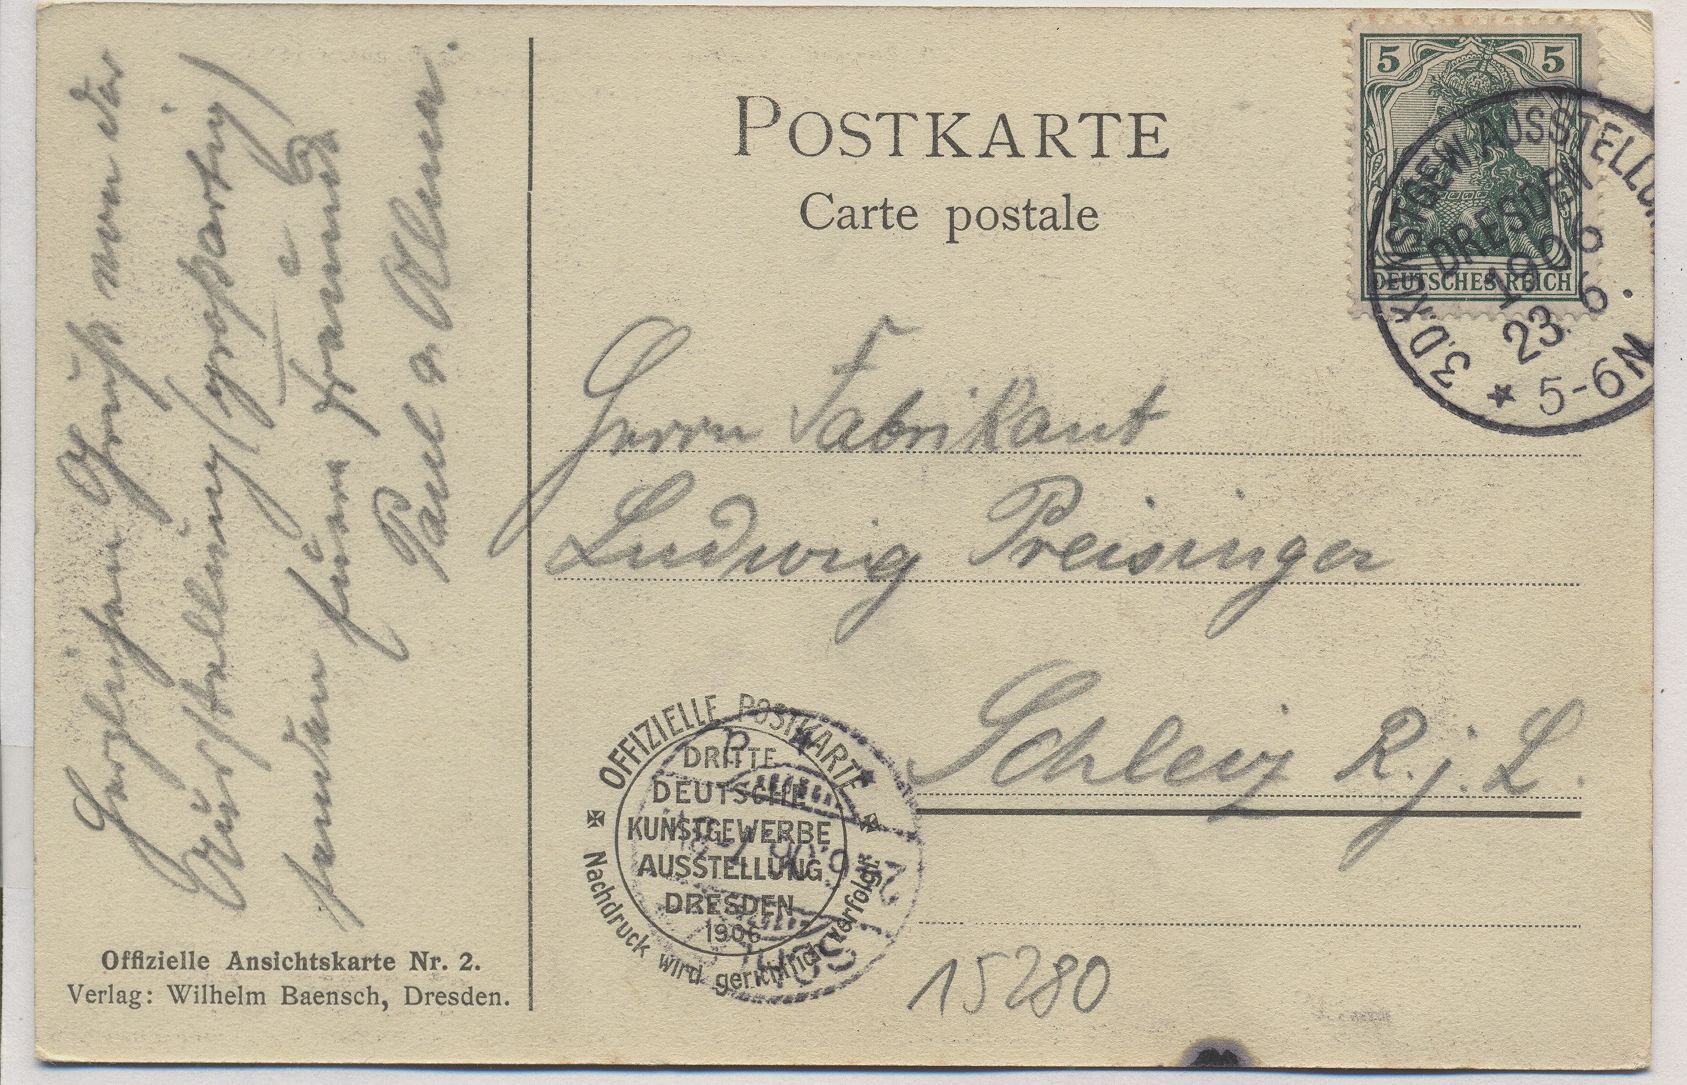 Herzlichen Gruß von der
Ausstellung (großartig)
senden
Paul u.
POSTKARTE
Carte postale
5 5
DEUTSCHES REICH
3.D.KUNSTGEW.AUSSTELLUN
DRESDEN
1906
23.6.
5-6N
Herrn Fabrikant
Ludwig Preisinger
Schleiz R. j. L.
OFFIZIELLE POSTKARTE
DRITTE
DEUTSCHE
KUNSTGEWERBE
AUSSTELLUNG
DRESDEN
1906
Nachdruck wird gerichtlich verfolgt.
15280
Offizielle Ansichtskarte Nr. 2.
Verlag: Wilhelm Baensch, Dresden.